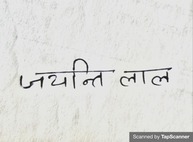 जयन्ति लाल
Scanned by TapScanner